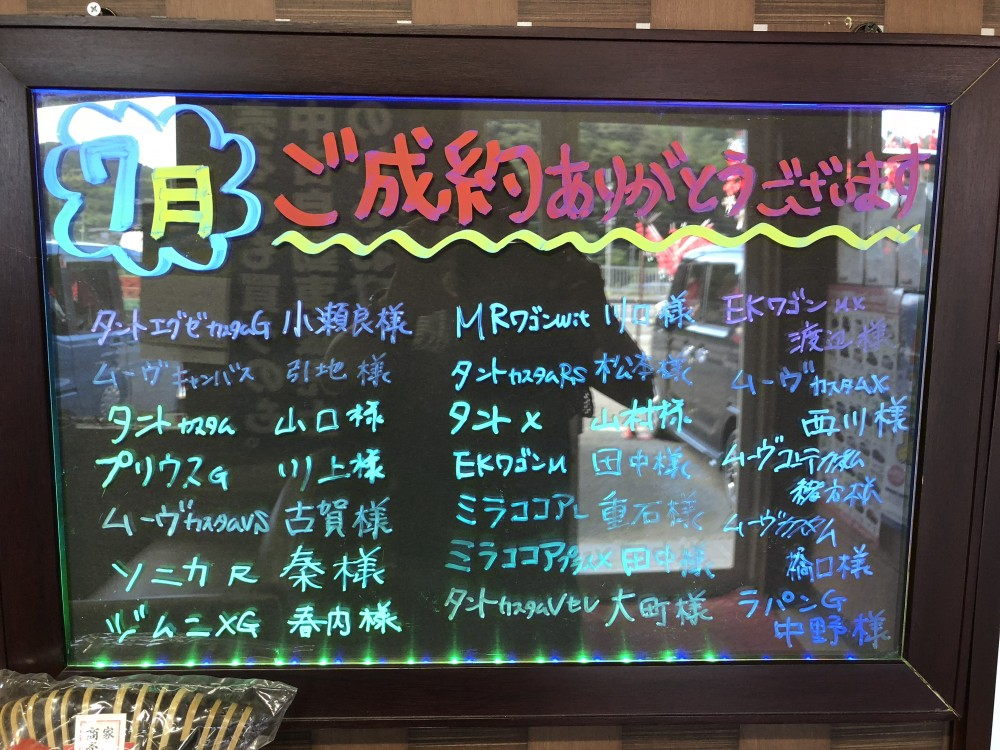 7月 ご成約ありがとうございます
タントエグゼカスタムG 小瀬良様
ムーヴキャンバス 引地様
タントカスタム 山口様
プリウスG 川上様
ムーヴカスタムVS 古賀様
ソニカR 秦様
ジムニーXG 春内様
MRワゴンwit 川口様
タントカスタムRS 松本様
タントX 山村様
EKワゴンM 田中様
ミラココアL 重石様
ミラココアプラスX 田中様
タントカスタムVセレ 大町様
EKワゴンMX
渡辺様
ムーヴカスタムX
西川様
ムーヴコンテカスタム
緒方様
ムーヴカスタム
橋口様
ラパンG
中野様
商家